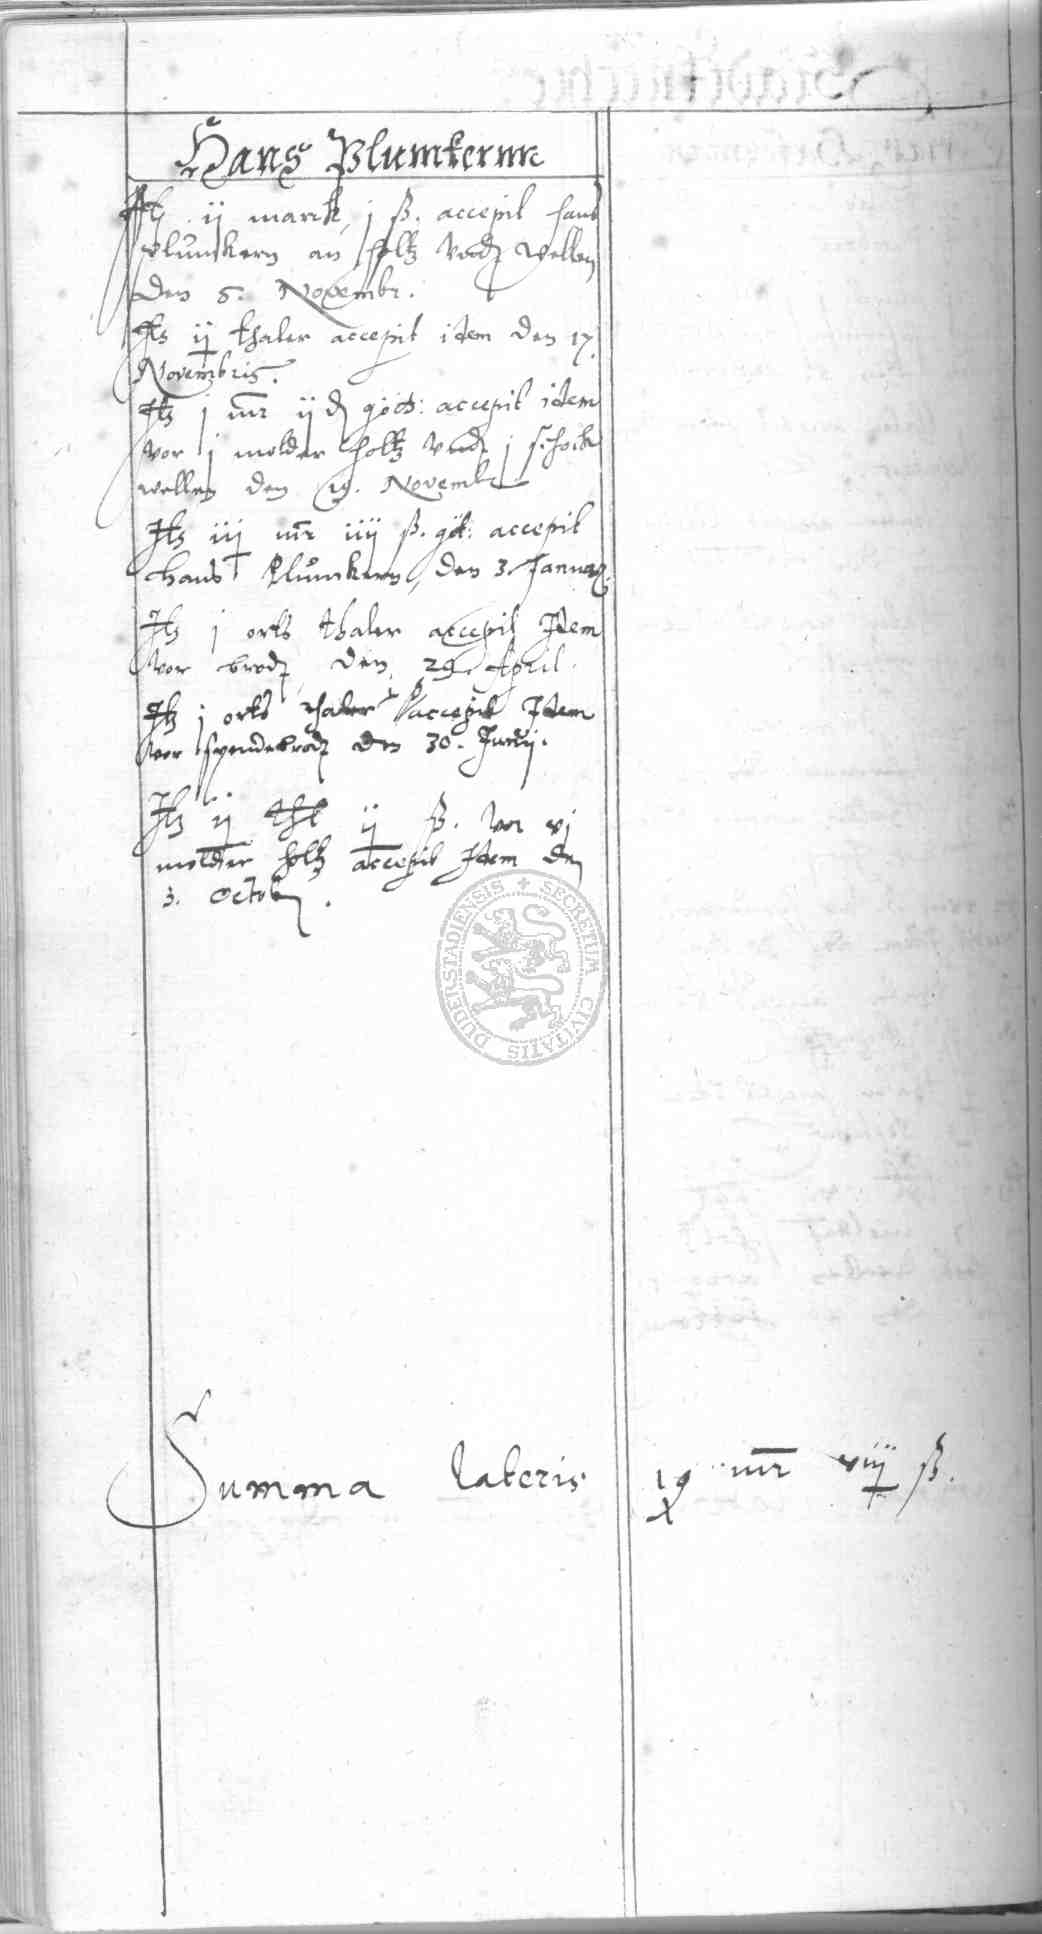 Hans Plumkernn
Itz ij marck j ß. accepit hans
plumkern an holtz vnd wellen
den 6. Novembr.
Itz ij thaler accepit item den 17.
Novembris.
Itz j mr ij d gött: accepit item
vor j molder holtz vnd j schock
wellen den 19. Novemb
Itz iij mr iiij ß. göt: accepit
hans Plumkern, den 3. Januar.
Itz j orts thaler accepit Item
vor brodt den 29. April.
Itz j orts thaler accepit Item
vor spendebrodt den 30. Junij.
Itz ij thl ij ß. vor vj
molder holtz accepit Item den
3. Octob.
SECRETUM CIVITATIS DUDERSTADIENSIS
Summa lateris 19 mr viij ß.